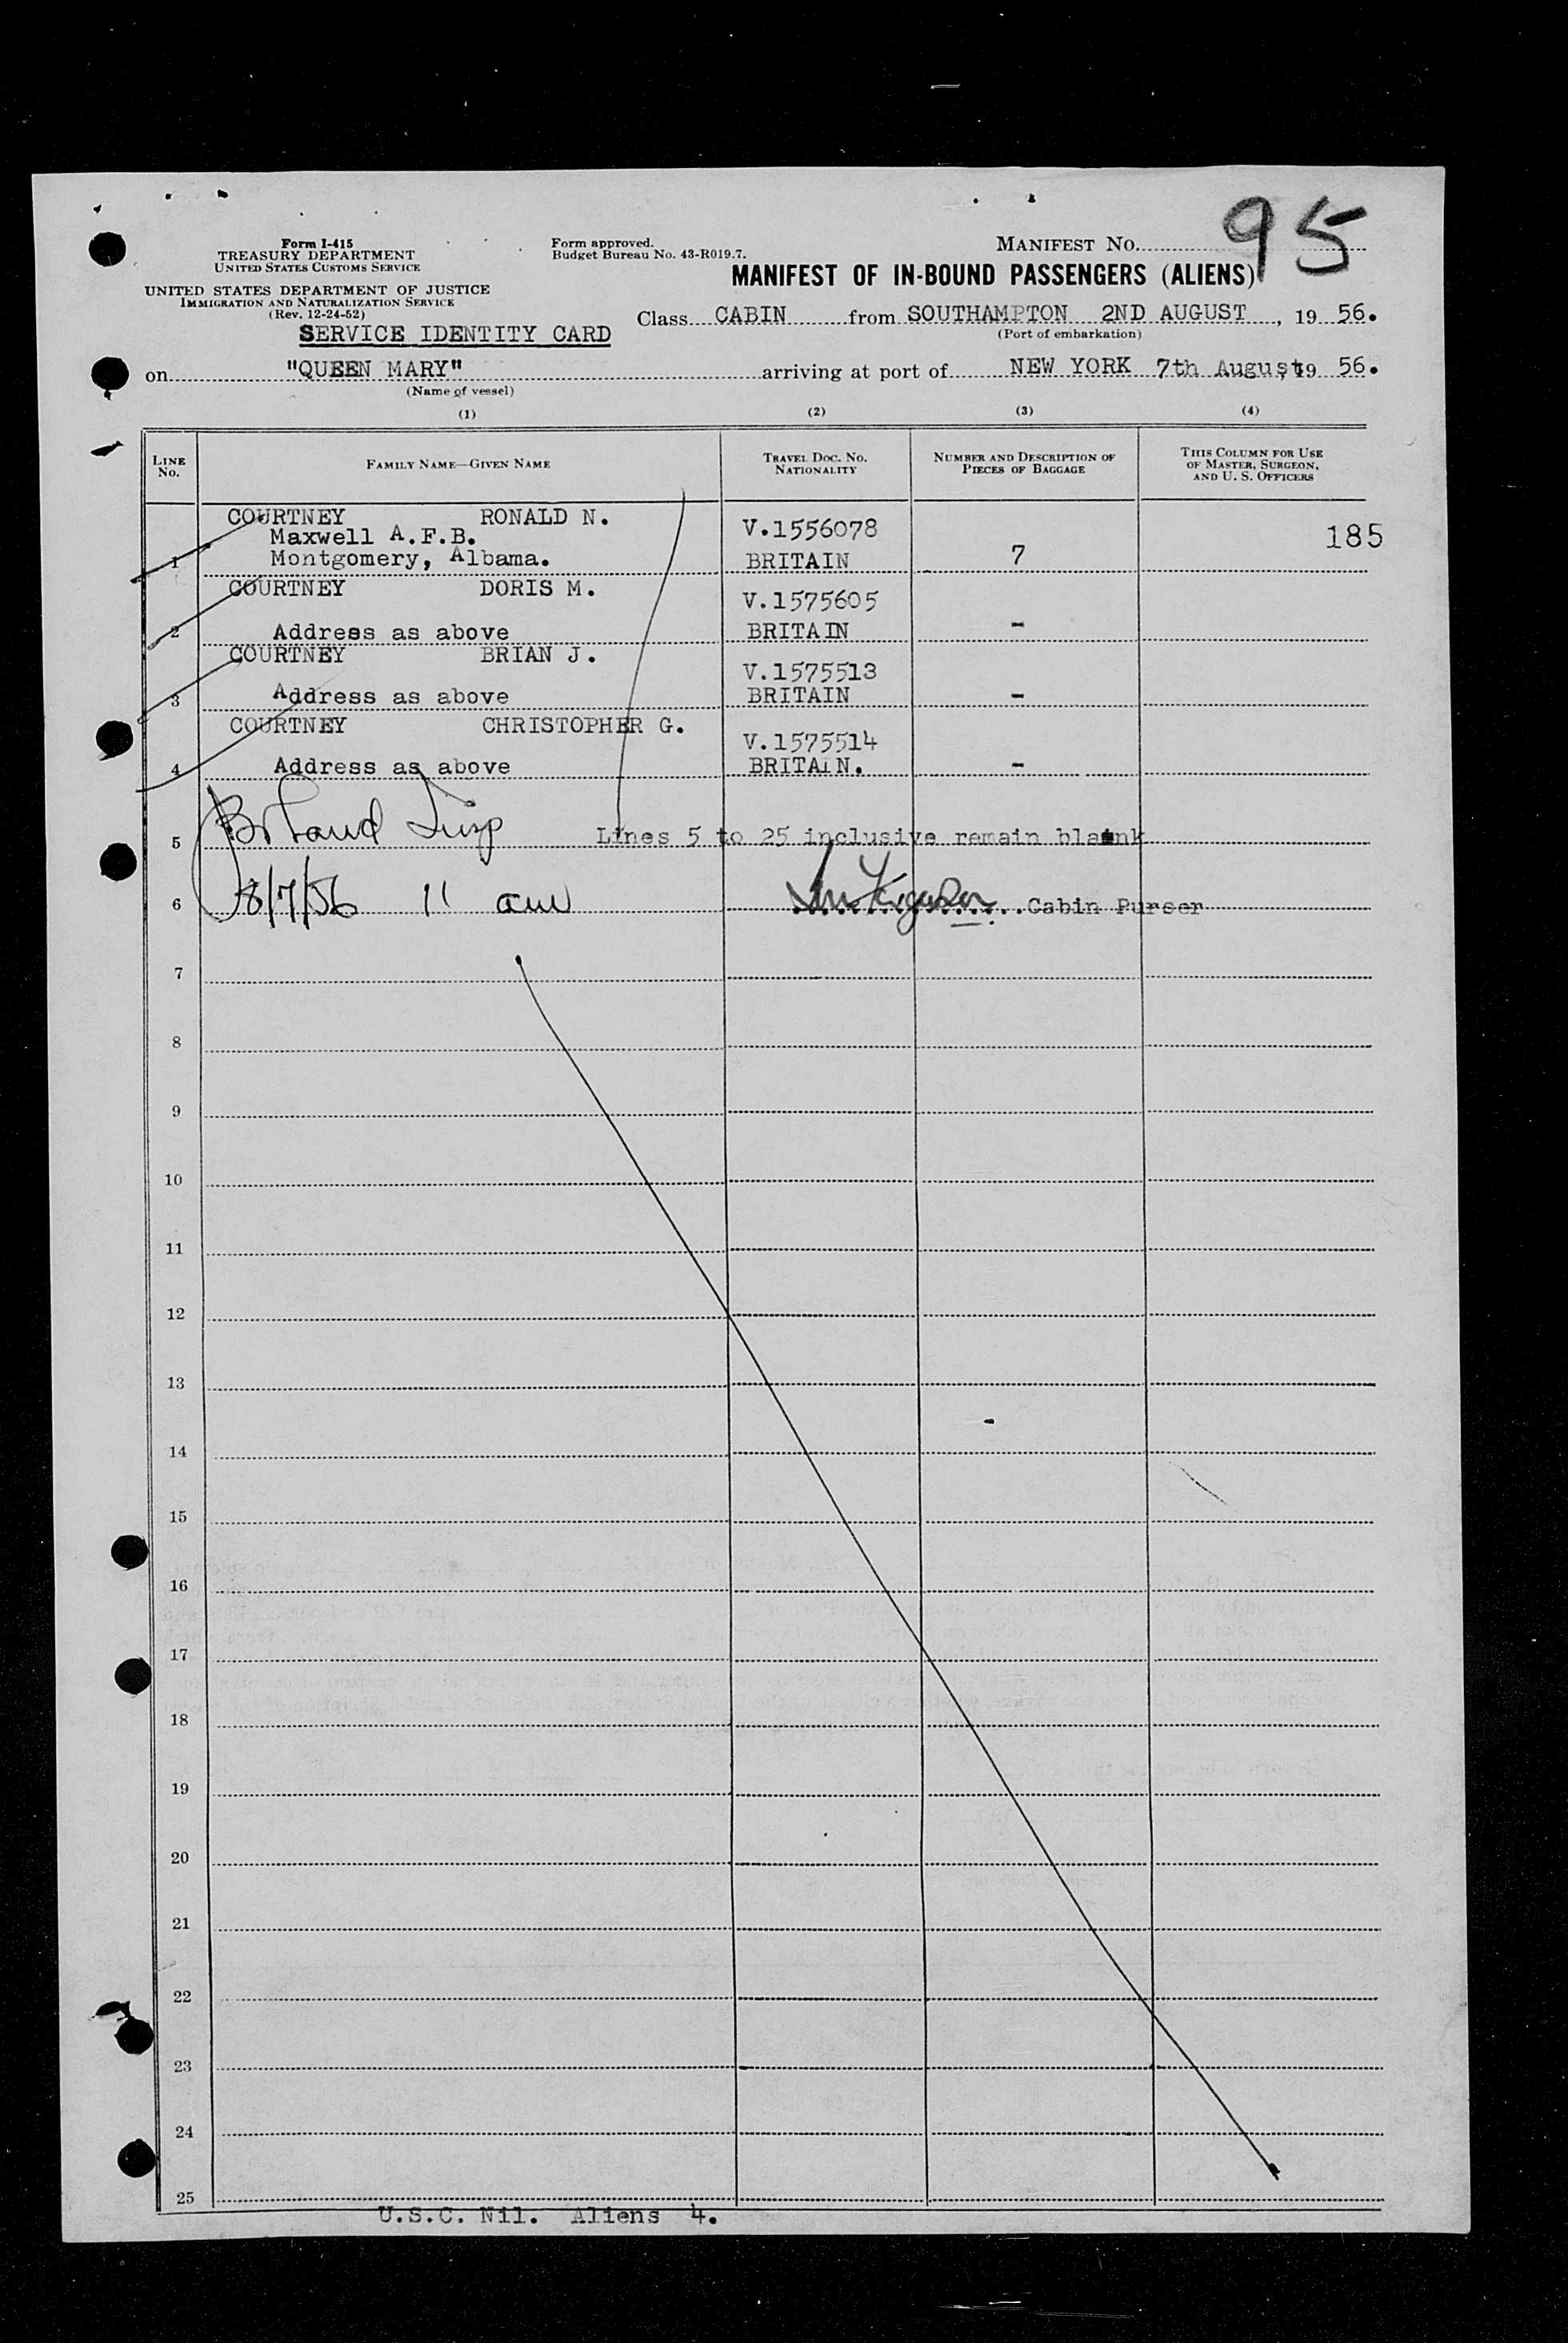 95
Form I-415
TREASURY DEPARTMENT
UNITED STATES CUSTOMS SERVICE
Form approved.
Budget Bureau No. 43-R019.7.
MANIFEST NO.
MANIFEST OF IN-BOUND PASSENGERS (ALIENS)
UNITED STATES DEPARTMENT OF JUSTICE
IMMIGRATION AND NATURALIZATION SERVICE
(Rev. 12-24-52)
SERVICE IDENTITY CARD
Class CABIN from SOUTHAMPTON 2ND AUGUST, 19 56.
(Port of embarkation)
on "QUEEN MARY" arriving at port of NEW YORK 7th August, 19 56.
(Name of vessel)
(1) (2) (3) (4)
LINE NO. FAMILY NAME—GIVEN NAME TRAVEL DOC. NO. NATIONALITY NUMBER AND DESCRIPTION OF PIECES OF BAGGAGE THIS COLUMN FOR USE OF MASTER, SURGEON, AND U. S. OFFICERS
COURTNEY RONALD N. V.1556078 185
Maxwell A.F.B.
1 Montgomery, Albama. BRITAIN 7
COURTNEY DORIS M. V.1575605
2 Address as above BRITAIN -
COURTNEY BRIAN J. V.1575513
3 Address as above BRITAIN -
COURTNEY CHRISTOPHER G. V.1575514
4 Address as above BRITAIN. -
5 Lines 5 to 25 inclusive remain blank
6 8/7/56 11 am Cabin Purser
7
8
9
10
11
12
13
14
15
16
17
18
19
20
21
22
23
24
25
U.S.C. Nil. Aliens 4.